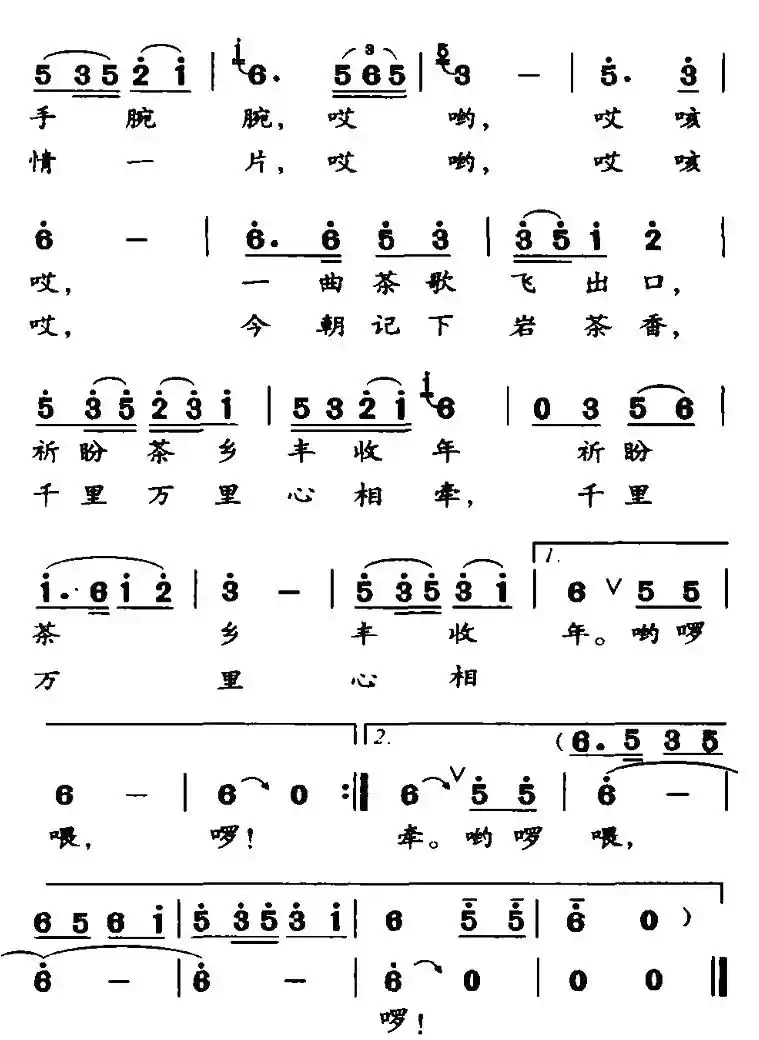 5 3 5 2 1 | 1 6. 5 6 5 | 5 3 — | 5. 3 |
手 腕 腕, 哎 哟, 哎 咳
情 一 片, 哎 哟, 哎 咳
6 — | 6. 6 5 3 | 3 5 1 2 |
哎, 一 曲 茶 歌 飞 出 口,
哎, 今 朝 记 下 岩 茶 香,
5 3 5 2 3 1 | 5 3 2 1 1 6 | 0 3 5 6 |
祈 盼 茶 乡 丰 收 年 祈 盼
千 里 万 里 心 相 牵, 千 里
1. 6 1 2 | 3 — | 5 3 5 3 1 | 1. 6 ∨ 5 5 |
茶 乡 丰 收 年。哟 啰
万 里 心 相
2. (6. 5 3 5
6 — | 6 0 :| 6 ∨ 5 5 | 6 — |
喂, 啰! 牵。哟 啰 喂,
6 5 6 1 | 5 3 5 3 1 | 6 5 5 | 6 0 )
6 — | 6 — | 6 0 | 0 0 ‖
啰!